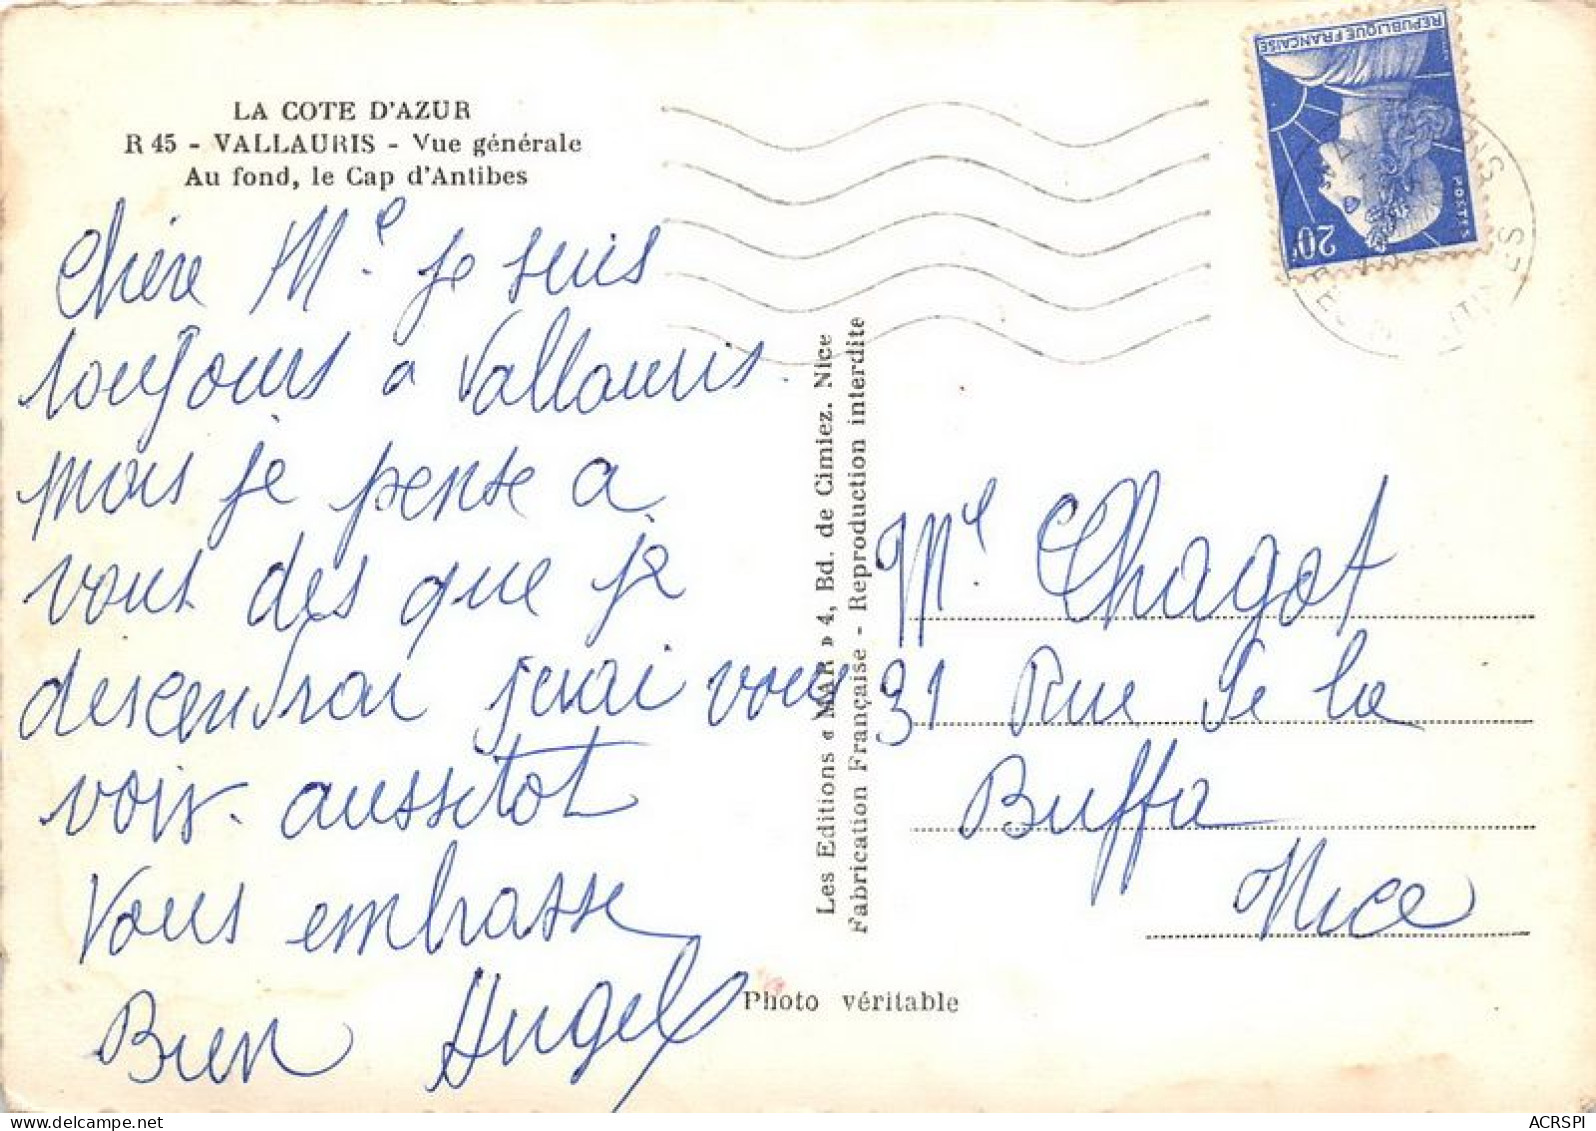 LA COTE D'AZUR
R 45 - VALLAURIS - Vue générale
Au fond, le Cap d'Antibes
Chère Me. je suis
toujours a Vallauris.
mais je pense a
vous des que je
descendrai jirai vous
voir. aussitot
Vous embrasse
Bien Angel
Les Editions « MAR » 4, Bd. de Cimiez. Nice
Fabrication Française - Reproduction interdite
REPUBLIQUE FRANÇAISE
POSTES
20F
Me. Chagot
31 Rue de la
Buffa
Nice
Photo véritable
ACRSPI